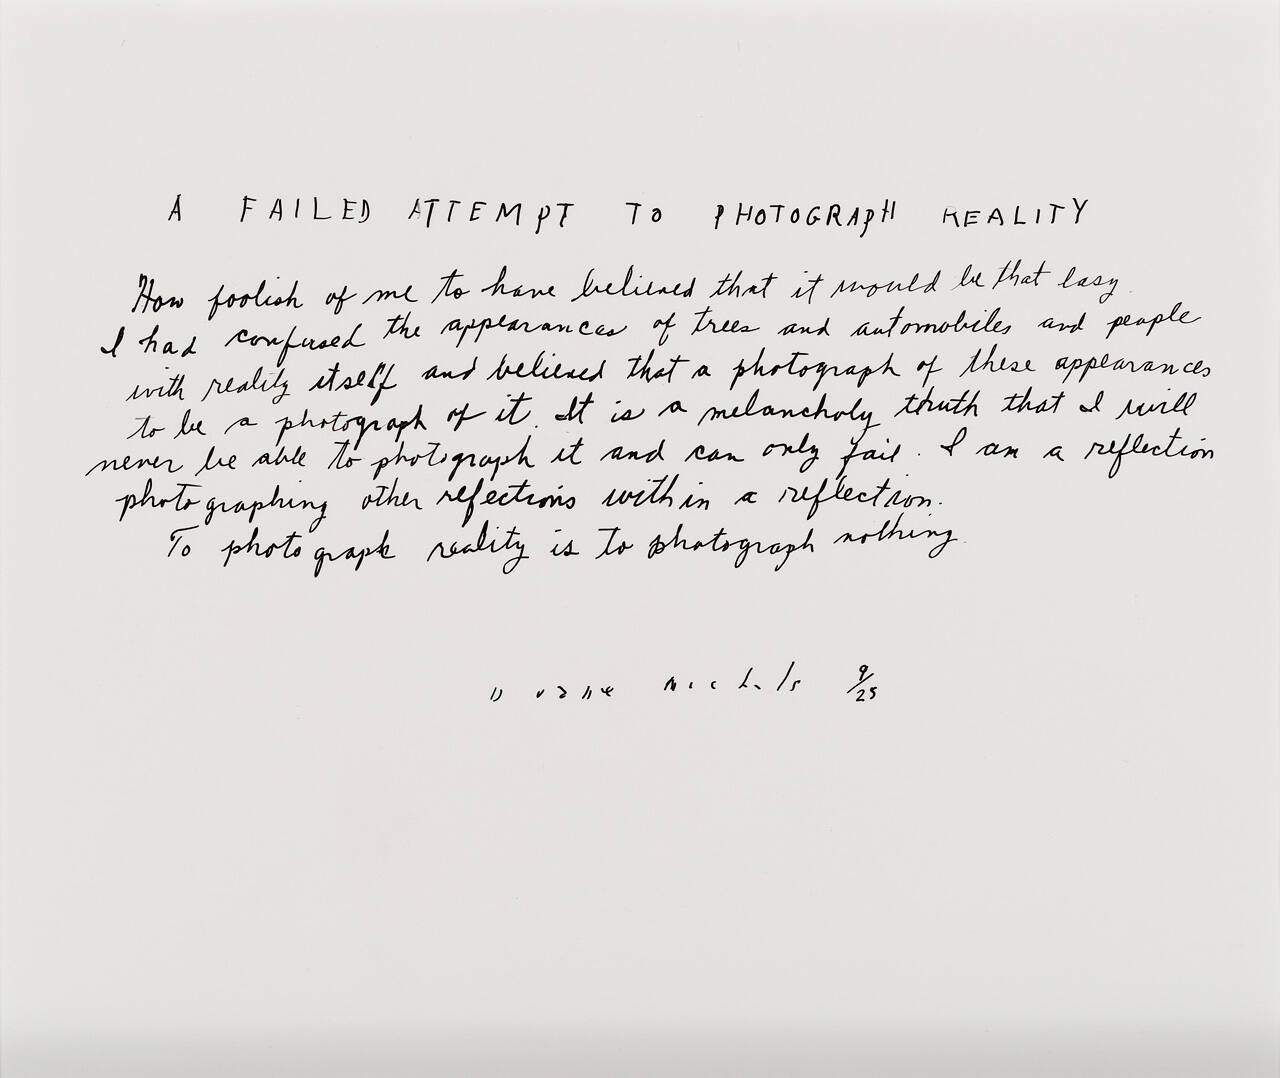 A FAILED ATTEMPT TO PHOTOGRAPH REALITY
How foolish of me to have believed that it would be that easy.
I had confused the appearances of trees and automobiles and people
with reality itself and believed that a photograph of these appearances
to be a photograph of it. It is a melancholy truth that I will
never be able to photograph it and can only fail. I am a reflection
photographing other refections within a reflection.
To photograph reality is to photograph nothing.
Duane Michals 9/25